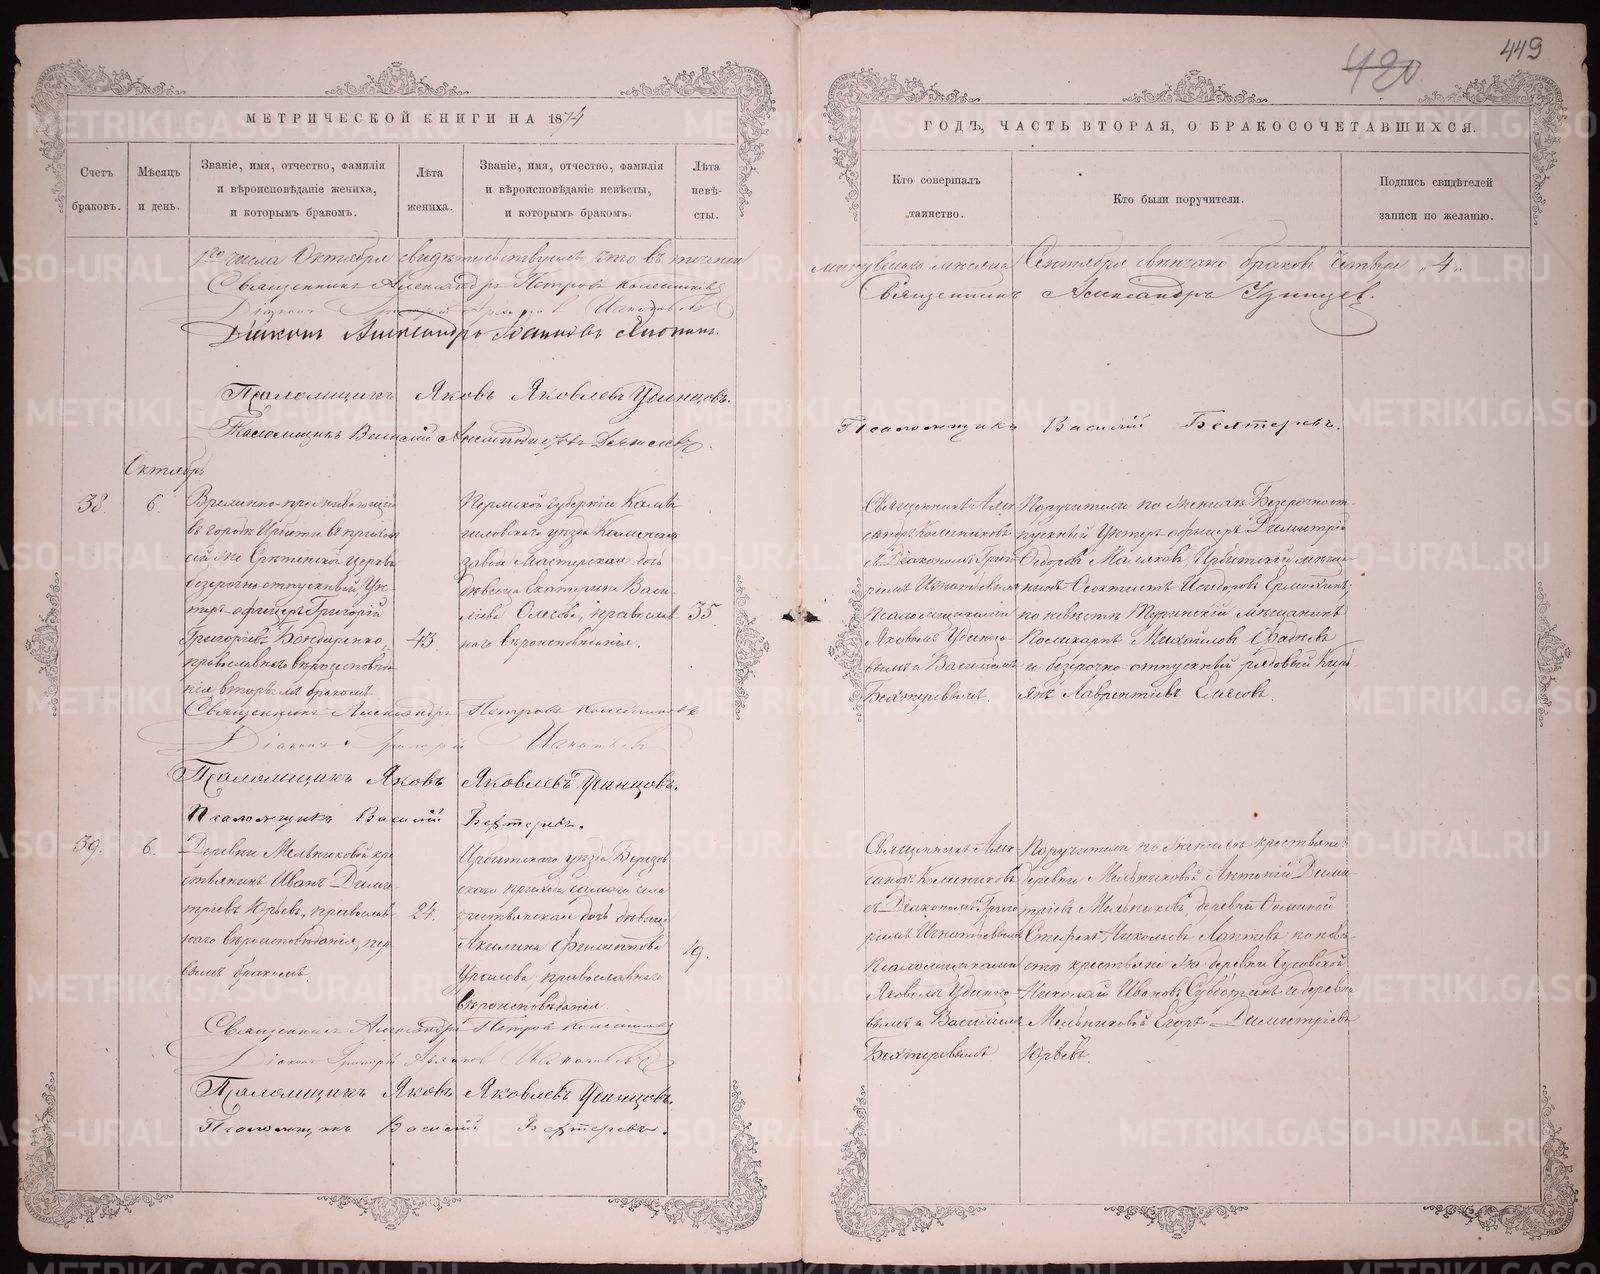 449
420
МЕТРИЧЕСКОЙ КНИГИ НА 1874
ГОДЪ, ЧАСТЬ ВТОРАЯ, О БРАКОСОЧЕТАВШИХСЯ.
Счетъ браковъ.
Мѣсяцъ и день.
Званіе, имя, отчество, фамилія
и вѣроисповѣданіе жениха,
и которымъ бракомъ.
Лѣта
жениха.
Званіе, имя, отчество, фамилія
и вѣроисповѣданіе невѣсты,
и которымъ бракомъ.
Лѣта
невѣ-
сты.
Кто совершалъ
таинство.
Кто были поручители.
Подпись свидѣтелей
записи по желанію.
1го числа Октября свидѣтельствуемъ, что въ теченіи
минувшаго мѣсяца Сентября вѣнчано браковъ четыре „4„
Священникъ Александръ Петровъ Колесниковъ
Священникъ Александръ Удинцев.
Діаконъ Игнатьевъ
Діаконъ Александръ
Псаломщикъ Яковъ Яковлевъ Удинцовъ.
Псаломщикъ Василій
Псаломщикъ Василій Бехтеревъ.
Октябрь
38.
6.
Временно-проживающій
въ городѣ Ирбити въ приходѣ
сей же Срѣтенской церкви
безсрочно-отпускный Ун-
теръ-офицеръ Григорій
Григорьевъ Бондаренко,
православнаго вѣроисповѣда-
нія, вторымъ бракомъ
43.
Пермской губерніи
уѣзда Каменскаго
завода Мастерская дочь
дѣвица Екатерина Васи-
льева православ-
наго вѣроисповѣданія.
35.
Священникъ Алек-
сандръ Колесниковъ
съ Діакономъ Григо-
ріемъ Игнатьевымъ
Псаломщиками
Яковомъ Удинцо-
вымъ и Василіемъ
Бехтеревымъ.
Поручители по женихѣ: Безсрочноот-
пускный Унтеръ-офицеръ Димитрій
Ѳедоровъ Ирбитскій мѣща-
нинъ Ѳеоктистъ Исидоровъ
по невѣстѣ Туринскій мѣщанинъ
Поликарпъ Михайловъ
и безсрочно-отпускный рядовый Кири-
Лаврентіевъ
Священникъ Александръ Петровъ Колесниковъ
Діаконъ Григорій Игнатьевъ
Псаломщикъ Яковъ Яковлевъ Удинцовъ.
Псаломщикъ Василій Бехтеревъ.
39.
6.
Деревни Мельниковой кре-
стьянинъ Иванъ Дими-
тріевъ Юрьевъ, православ-
наго вѣроисповѣданія, пер-
вымъ бракомъ.
24.
Ирбитскаго уѣзда Березов-
скаго прихода самаго села
крестьянская дочь дѣвица
Акилина Филиппова
православнаго
вѣроисповѣданія.
19.
Священникъ Алек-
сандръ Колесниковъ
съ Діакономъ Григо-
ріемъ Игнатьевымъ
Псаломщиками
Яковомъ Удинцо-
вымъ и Василіемъ
Бехтеревымъ
Поручители по женихѣ крестьяне:
деревни Мельниковой Антоній Дими-
тріевъ Мельниковъ, деревни Ѳоминой
Стефанъ Николаевъ Лаптевъ по невѣ-
стѣ крестьяне же деревни
Николай Ивановъ Субботинъ и деревни
Мельниковой Егоръ Димитріевъ
Юрьевъ.
Священникъ Александръ Петровъ Колесниковъ
Діаконъ Григорій Игнатьевъ
Псаломщикъ Яковъ Яковлевъ Удинцовъ.
Псаломщикъ Василій Бехтеревъ.
METRIKI.GASO-URAL.RU